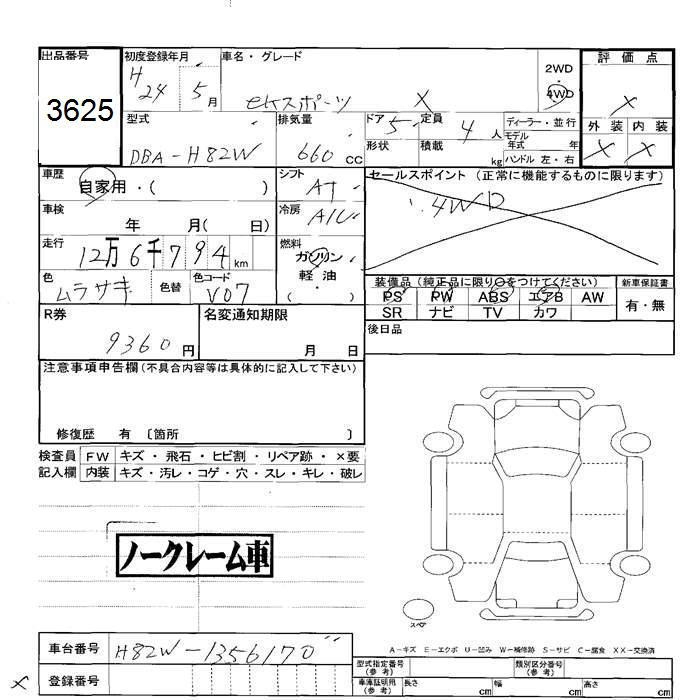 出品番号 初度登録年月 車名・グレード 2WD 4WD 評価点
3625 H24 5月 eKスポーツ X X
型式 排気量 ドア 5 定員 4人 ディーラー・並行 外装 内装
DBA-H82W 660cc 形状 積載 kg モデル年式 年 X X
ハンドル 左・右
車歴 自家用・( ) シフト AT セールスポイント(正常に機能するものに限ります)
車検 年 月( 日) 冷房 A/C 4WD
走行 12万6千794km 燃料 ガソリン 軽油・( )
色 ムラサキ 色替 色コード V07
装備品(純正品に限り○をつけてください) 新車保証書
PS PW ABS エアB AW 有・無
SR ナビ TV カワ
R券 9360円 名変通知期限 月 日 後日品
注意事項申告欄(不具合内容等は具体的に記入して下さい)
修復歴 有 〔箇所 〕
検査員記入欄 FW キズ・飛石・ヒビ割・リペア跡・×要
内装 キズ・汚レ・コゲ・穴・スレ・キレ・破レ
ノークレーム車
スペア
A-キズ E-エクボ U-凹み W-補修跡 S-サビ C-腐食 XX-交換済
車台番号 H82W-1356170
登録番号
型式指定番号(参考) 類別区分番号(参考)
車庫証明用(参考) 長さ cm 幅 cm 高さ cm
X